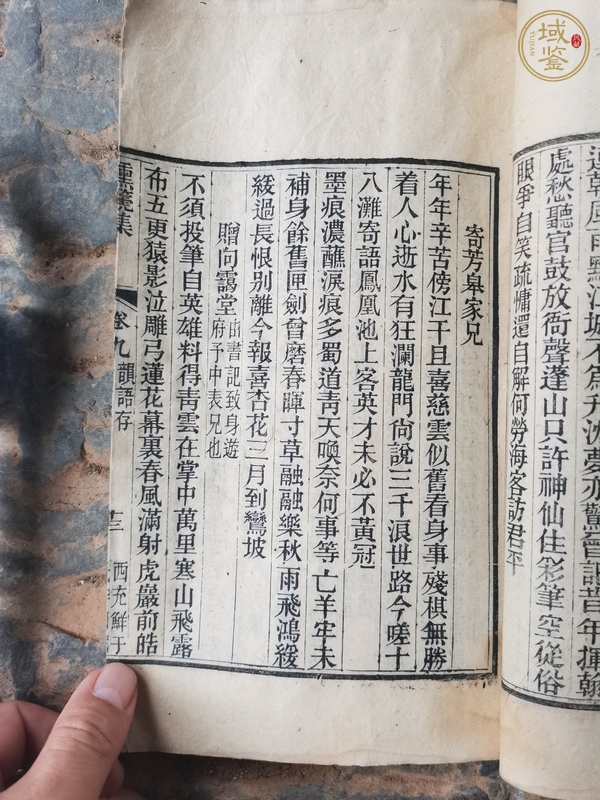 遠韓風雨黯江城不爲升沈夢亦驚曾記昔年揮翰
處愁聽官鼓放衙聲蓬山只許神仙住彩筆空從俗
眼爭自笑疏慵還自解何勞海客訪君平
寄芳皐家兄
年年辛苦傍江干且喜慈雲似舊看身事殘棋無勝
着人心逝水有狂瀾龍門尙說三千浪世路今嗟十
八灘寄語鳳凰池上客英才未必不黃冠
墨痕濃蘸淚痕多蜀道靑天喚奈何事等亡羊牢未
補身餘舊匣劍曾磨春暉寸草融融樂秋雨飛鴻緩
緩過長恨別離今報喜杏花三月到鸞坡
贈向靄堂
由書記致身遊
府予中表兄也
不須投筆自英雄料得靑雲在掌中萬里寒山飛露
布五更猿影泣雕弓蓮花幕裏春風滿射虎巖前皓
壎篪集
卷九
韻語存
十三
西充鮮于
域鑒
YUJIAN